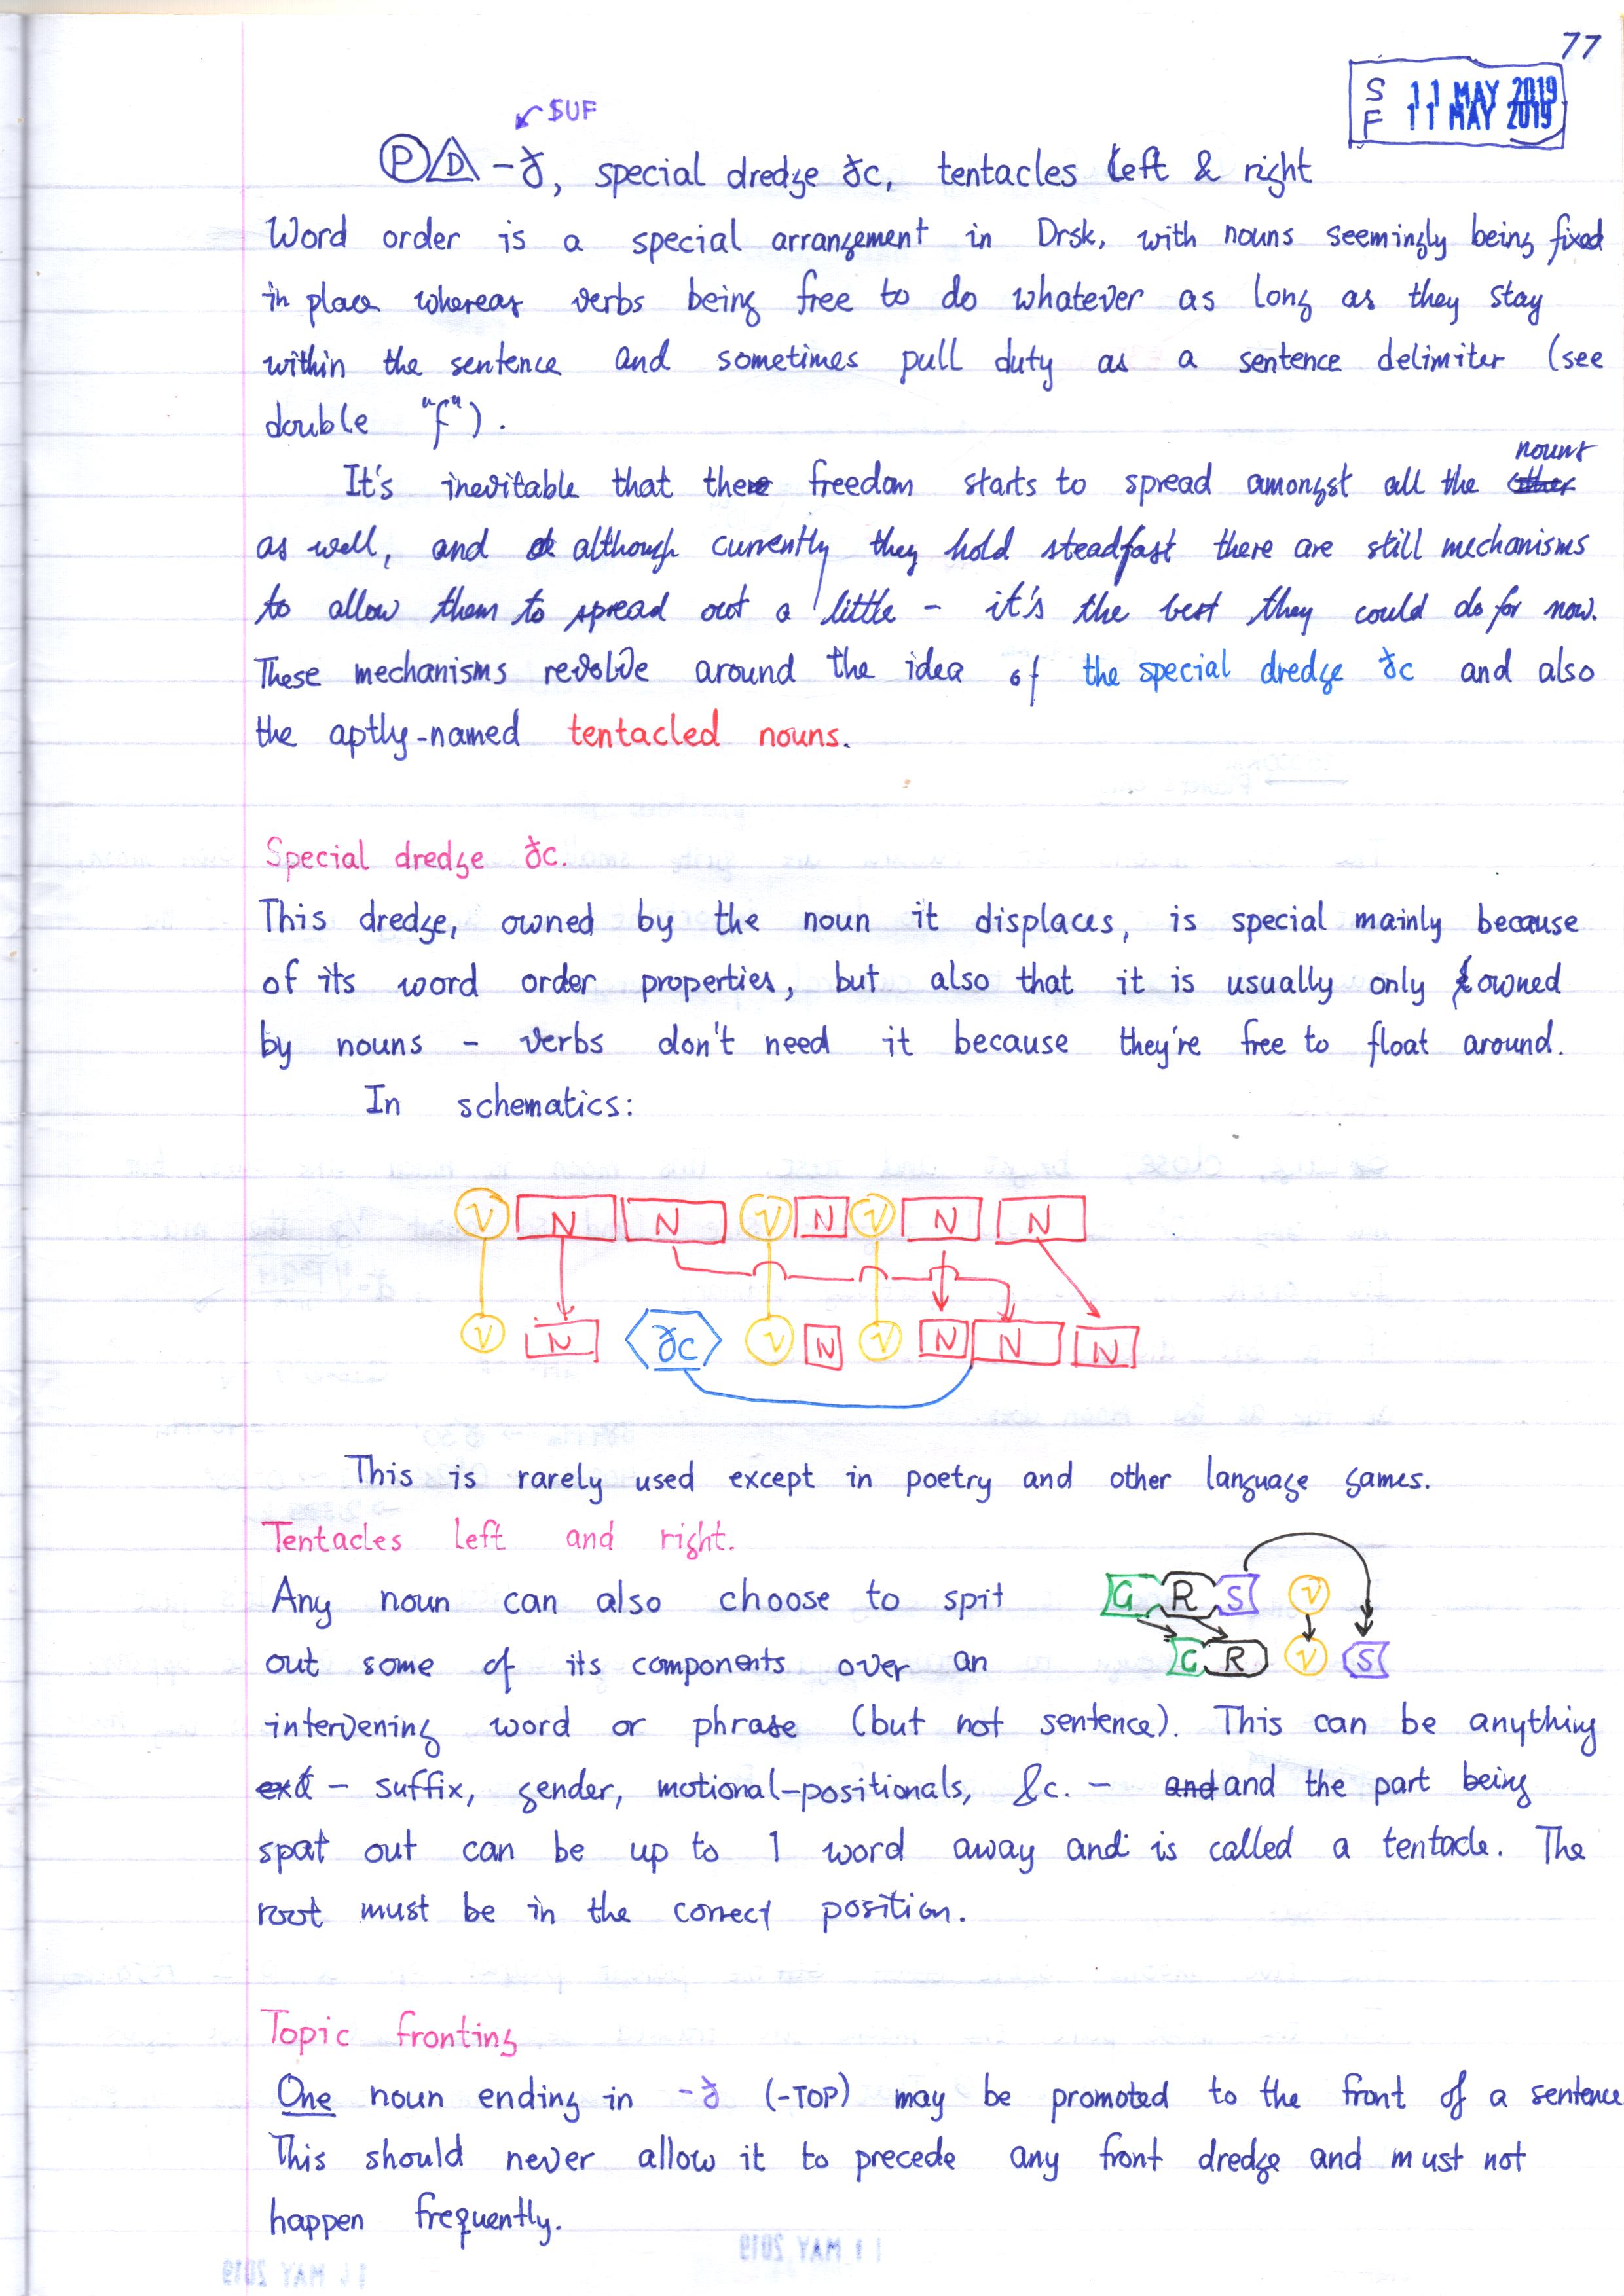 77
S F 11 MAY 2019
11 MAY 2019
SUF
P D -ꝺ̄, special dredge ꝺ̄c, tentacles left & right
Word order is a special arrangement in Drsk, with nouns seemingly being fixed
in place whereas verbs being free to do whatever as long as they stay
within the sentence and sometimes pull duty as a sentence delimiter (see
double "f").
nouns
It's inevitable that there freedom starts to spread amongst all the other
as well, and although currently they hold steadfast there are still mechanisms
to allow them to spread out a little - it's the best they could do for now.
These mechanisms revolve around the idea of the special dredge ꝺ̄c and also
the aptly-named tentacled nouns.
Special dredge ꝺ̄c.
This dredge, owned by the noun it displaces, is special mainly because
of its word order properties, but also that it is usually only owned
by nouns - verbs don't need it because they're free to float around.
In schematics:
V N N V N V N N
V N ꝺ̄c V N V N N N
This is rarely used except in poetry and other language games.
Tentacles left and right.
G R S V
Any noun can also choose to spit
G R V S
out some of its components over an
intervening word or phrase (but not sentence). This can be anything
- suffix, gender, motional-positionals, &c. - and and the part being
spat out can be up to 1 word away and is called a tentacle. The
root must be in the correct position.
Topic fronting
One noun ending in -ꝺ̄ (-TOP) may be promoted to the front of a sentence
This should never allow it to precede any front dredge and must not
happen frequently.
11 MAY 2019
11 MAY 2019